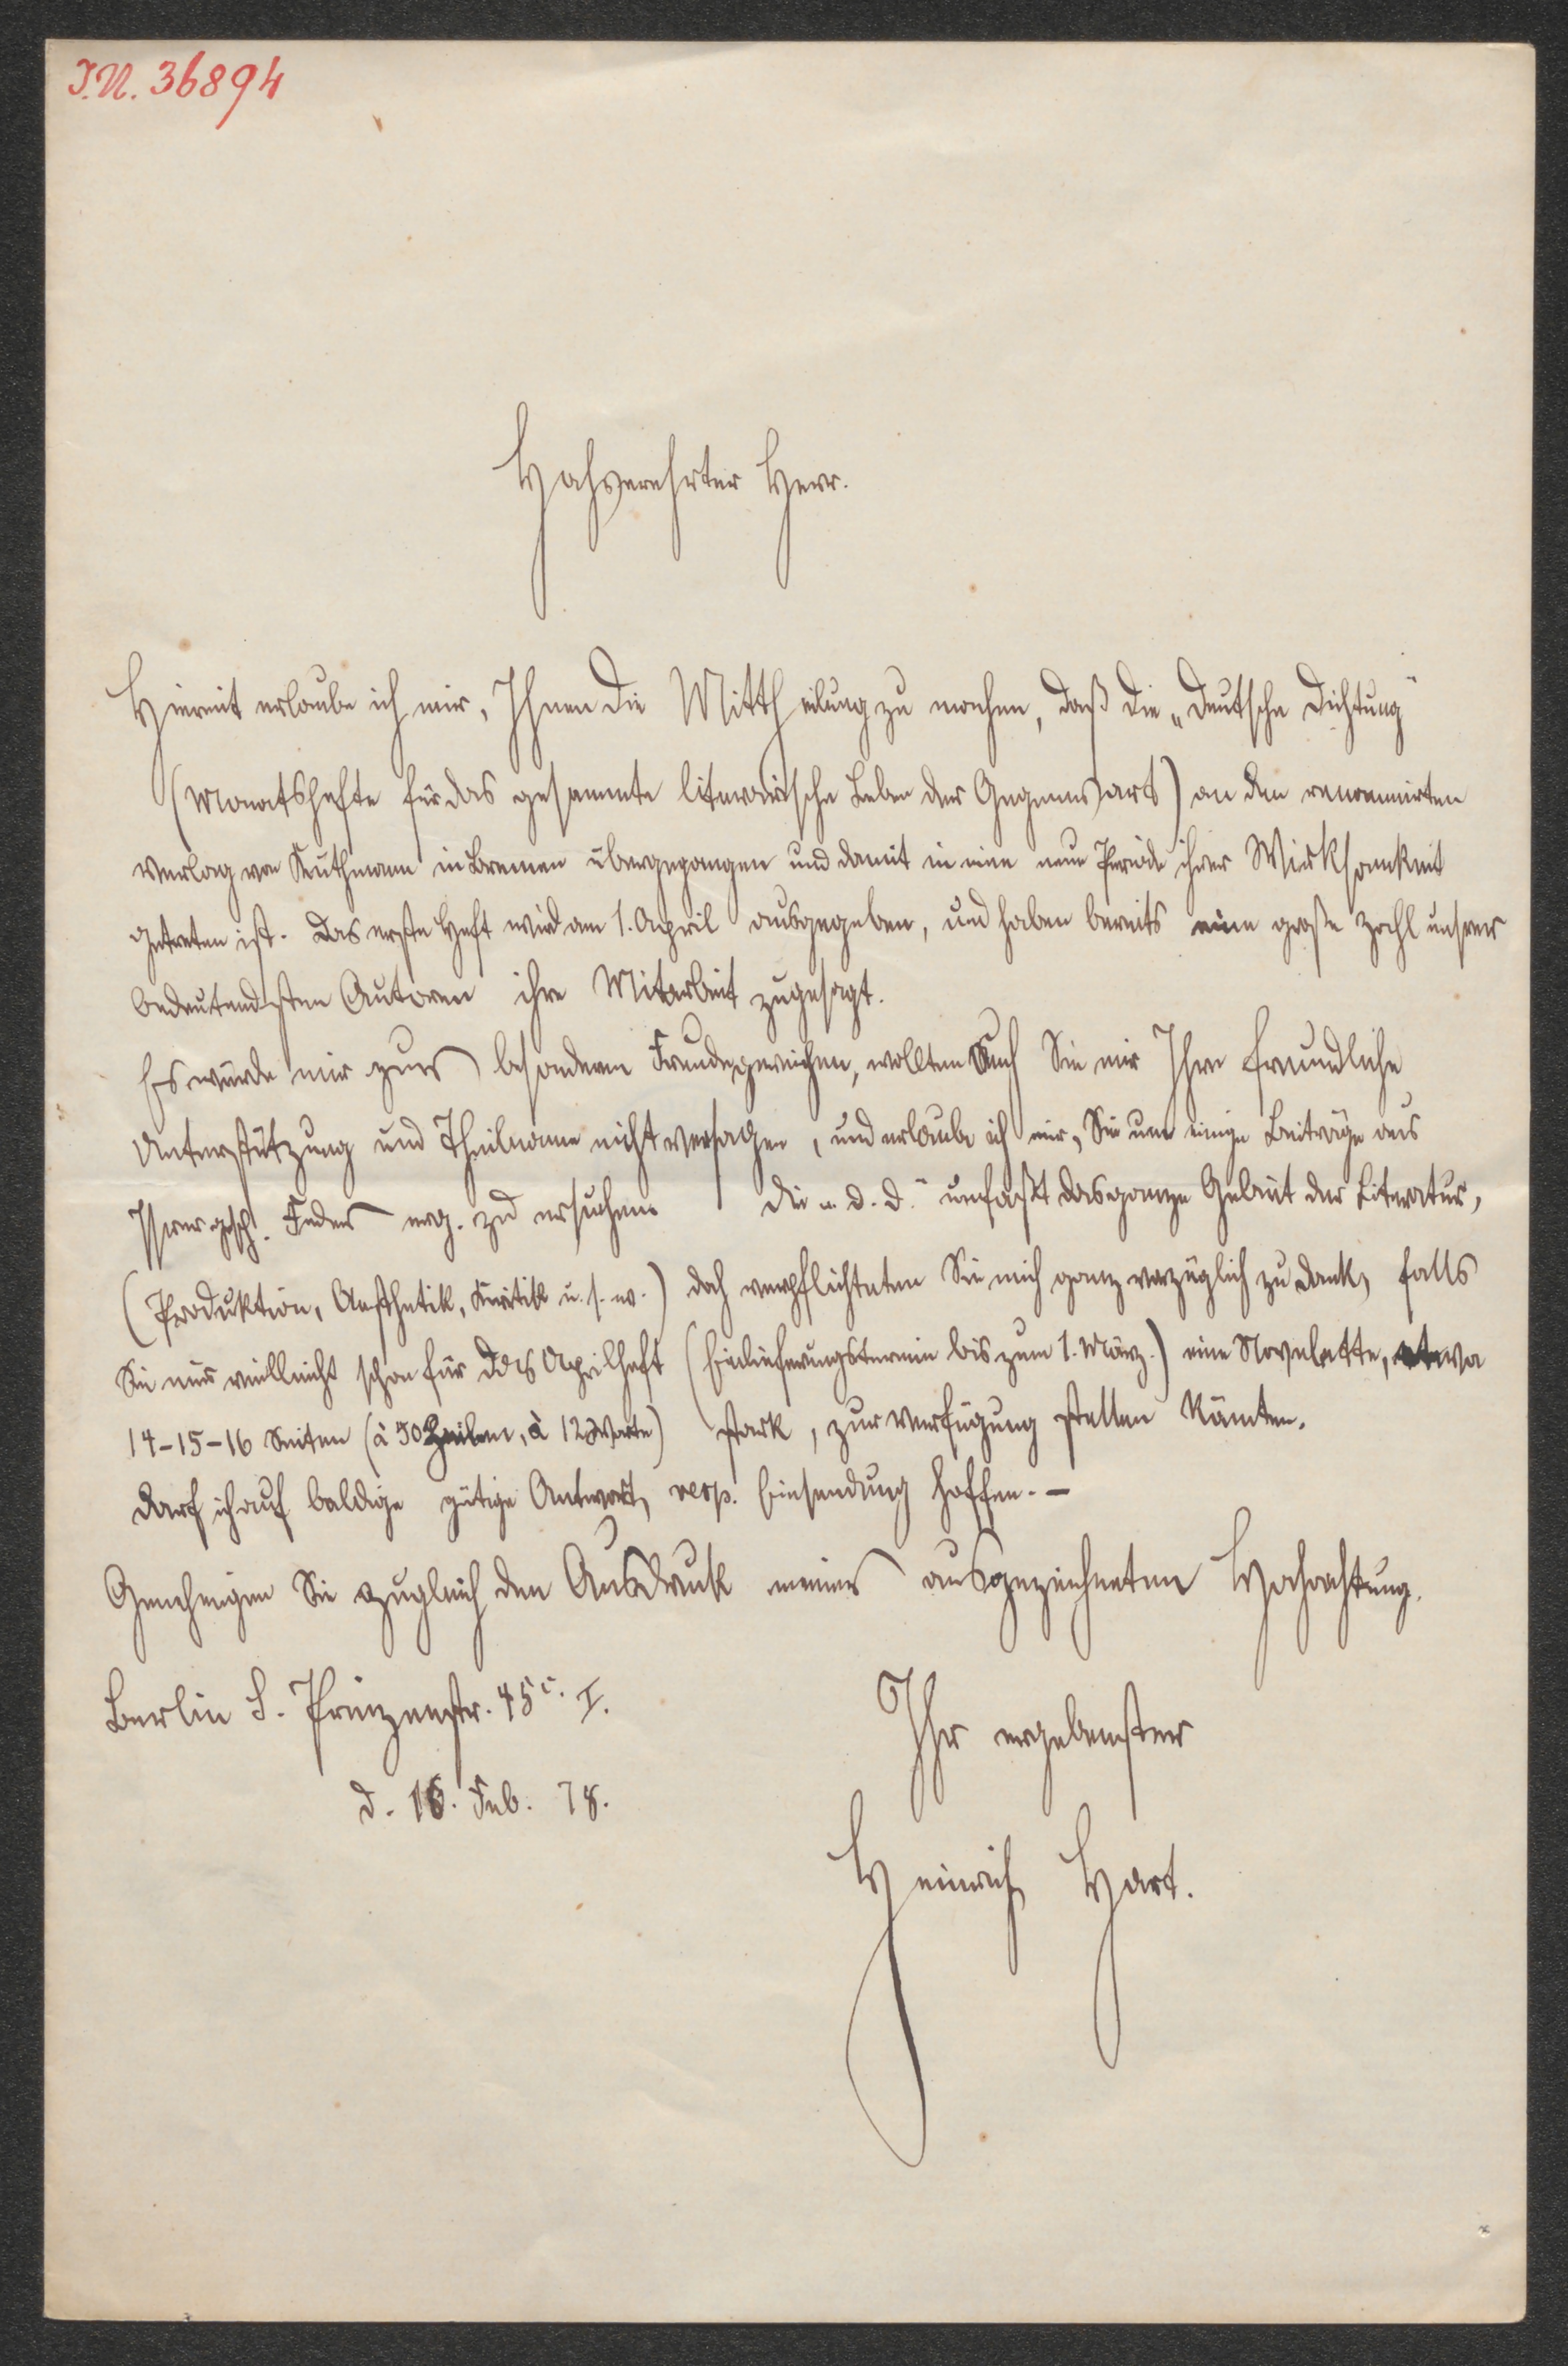 J.N. 36894
Hochverehrter Herr.
Hiermit erlaube ich mir, Ihnen die Mittheilung zu machen, daß die „Deutsche Dichtung"
(Monatshefte für das gesammte literarische Leben der Gegenwart) an den renommirten
Verlag von Kuthmann in Bremen übergegangen und damit in eine neue Periode ihrer Wirksamkeit
getreten ist. Das erste Heft wird am 1. April ausgegeben, und haben bereits eine große Zahl unsrer
bedeutendsten Autoren ihre Mitarbeit zugesagt.
Es würde mir zur besonderen Freude gereichen, wollten auch Sie mir Ihre freundliche
Unterstützung und Theilname nicht versagen, und erlaube ich mir, Sie um einige Beiträge aus
Ihrer gesch. Feder erg. zu ersuchen. Die „D. D." umfaßt das ganze Gebiet der Literatur,
(Produktion, Aesthetik, Kritik u. s. w.) doch verpflichteten Sie mich ganz vorzüglich zu Dank, falls
Sie mir vielleicht schon für das Aprilheft (Einlieferungstermin bis zum 1. März.) eine Novelette, etwa
14-15-16 Seiten (à 50 Zeilen, à 12 Worte) stark, zur Verfügung stellen könten.
Darf ich auf baldige gütige Antwort, resp. Einsendung hoffen. –
Genehmigen Sie zugleich den Ausdruck meiner ausgezeichneten Hochachtung.
Berlin S. Prinzenstr. 45 c. I.
Ihr ergebenster
d. 16. Feb. 78.
Heinrich Hart.